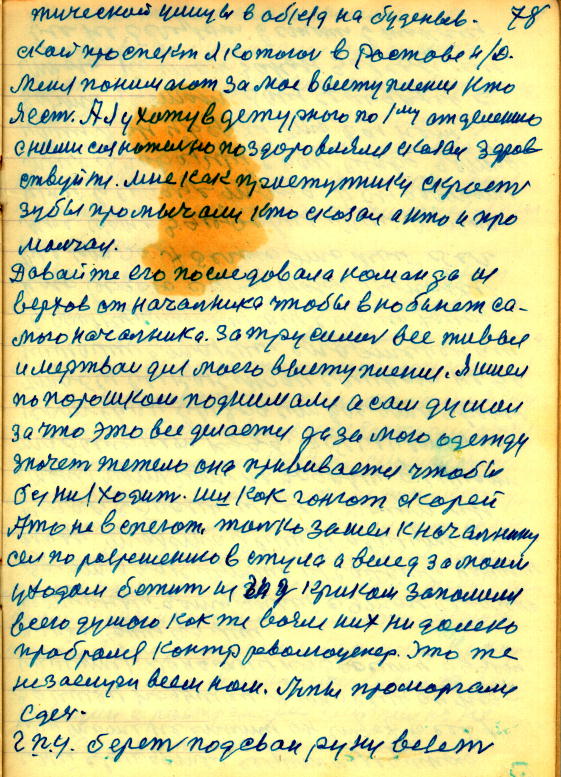 тической улицы в обход на буденов- 78
ской проспект я котогов в Ростове н/Д.
Меня понимают за мое выступления кто
я ест. А я ухожу в детурного по 1му отделению
с ними сознательно поздоровлялся сказал здрав
ствуйти. мне как приступнику скрости
зубы промычали кто сказал а кто и про
молчал.
Давайте его последовала команда и
верхов от началника чтобы в кобынет са-
мого началника. Затрусили все живые
и мертвои для моего выступления. Я шел
по порошком поднимался а сам думал
за что это все делается да за мою одежду
значет тежело она прививается чтобы
бу ни ходит. как гонют скорей
А то не в спеют. толко зашел к началнику
сел по разрешению в стула а вслед за моим
уходом бежит и крикам заполнил
всего думою как же возли них ни далеко
пробрался контрреволюценер. Это же
незаепри всем нам. Липы проморгали
сдес.
Г.П.У. берет под свои руки весет